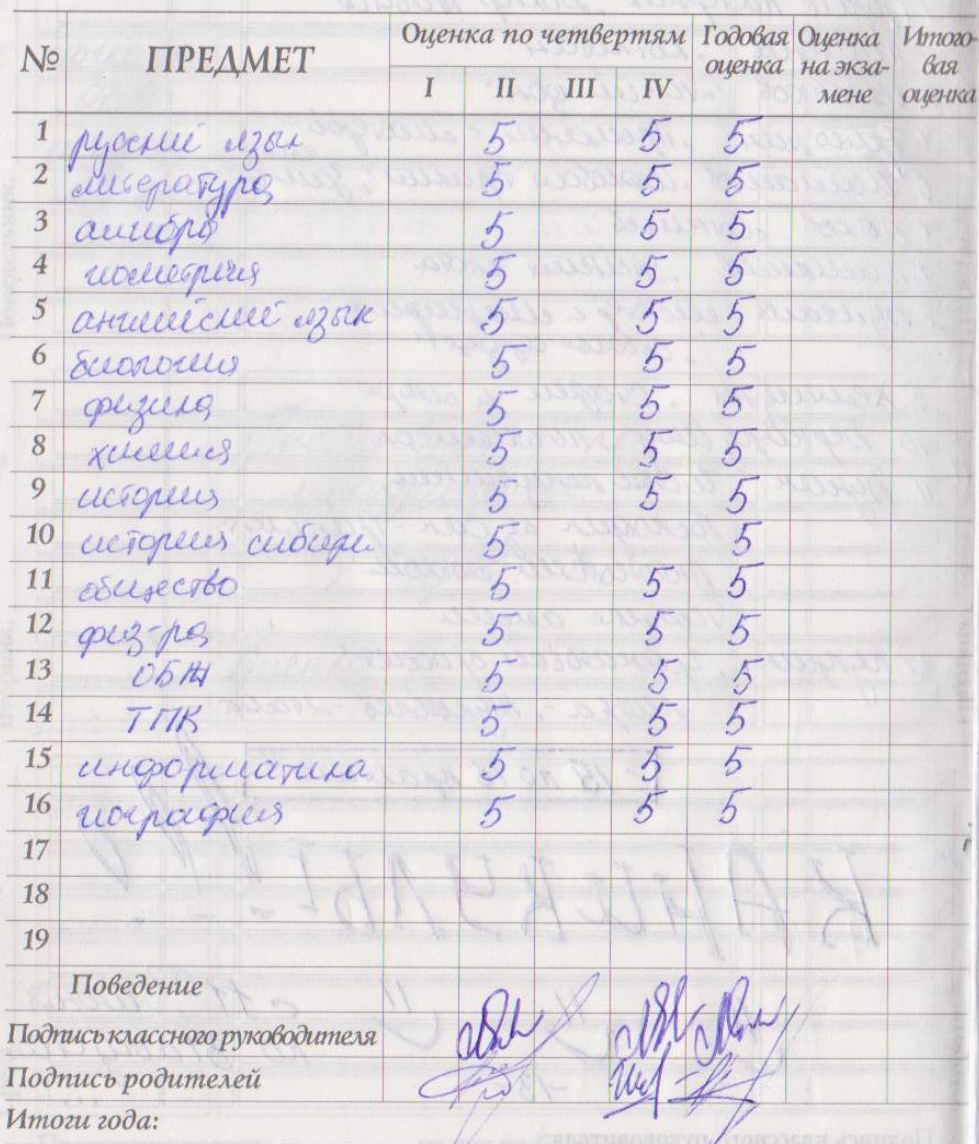 № ПРЕДМЕТ Оценка по четвертям Годовая оценка Оценка на экзамене Итоговая оценка
I II III IV
1 русский язык 5 5 5
2 литература 5 5 5
3 алгебра 5 5 5
4 геометрия 5 5 5
5 английский язык 5 5 5
6 биология 5 5 5
7 физика 5 5 5
8 химия 5 5 5
9 история 5 5 5
10 история сибири 5 5
11 общество 5 5 5
12 физ-ра 5 5 5
13 ОБЖ 5 5 5
14 ТПК 5 5 5
15 информатика 5 5 5
16 география 5 5 5
17
18
19
Поведение
Подпись классного руководителя
Подпись родителей
Итоги года: